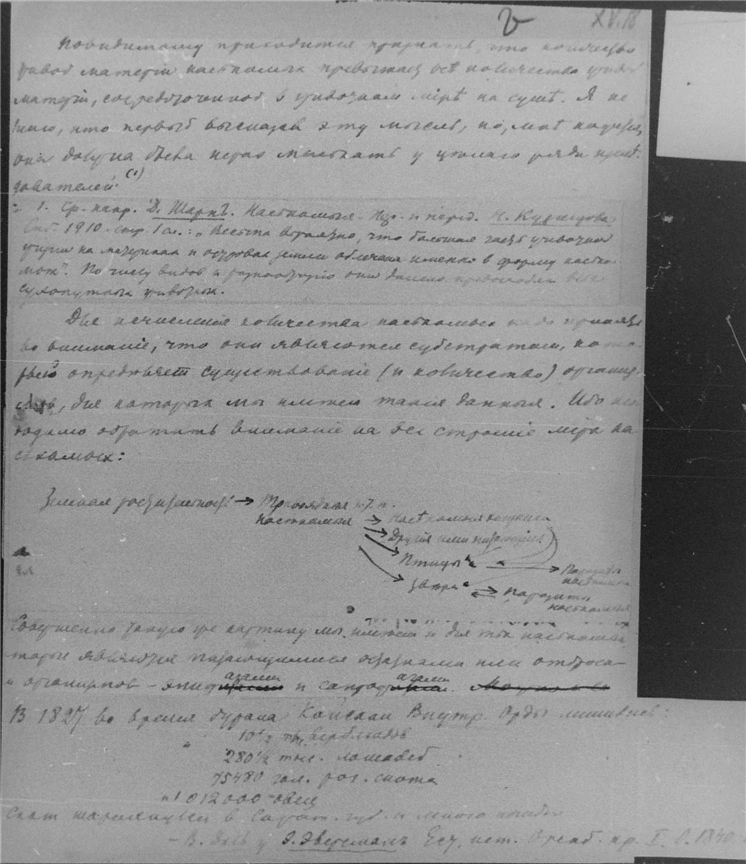 XV.18
Повидимому приходится признать, что количество
живой матерiи насѣкомых превышает всѣ количество живой
матерiи, сосредоточенной в животном мiрѣ на сушѣ. Я не
знаю, кто первый высказал эту мысль, но, мнѣ кажется,
она должна была не раз мелькать у цѣлаго ряда изслѣ-
дователей (1)
1. Ср. напр. Д. Шарпъ. Насѣкомыя. Изд. и перев. Н. Кузнецова
Спб 1910. стр. 1 сл.: „Весьма вѣроятно, что большая часть животной
жизни на материках и островах земли облечена именно в форму насѣко-
мых". По числу видов и разнообразiю они далеко превосходят всѣх
сухопутных животных.
Для исчисленiя количества насѣкомых надо принять
во вниманiе, что они являются субстратом, кото-
рый опредѣляет существованiе (и количество) организ-
мов, для которых мы имѣем такiя данныя. Ибо необ-
ходимо обратить вниманiе на все строенiе мiра на-
сѣкомых:
Зеленая растительность → Травоядныя и т. п.
насѣкомыя → насѣкомыя хищныя
Другiя ими питающiяся
Птицы →
Паразиты
насѣкомыя
Звѣри
Паразиты
насѣкомыя
Совершенно такую же картину мы имѣем и для тѣх насѣкомых
которые являются питающимися остатками или отброса-
и организмов – и сапрофагами
В 1827 во время бурана Кайсаки Внутр. Орды лишились:
10½ тыс. верблюдов
280½ тыс. лошадей
75480 гол. рог. скота
1012000 овец
Скот шарахнулся в Сарат. губ. и много погибло
– В. Даль у Э. Эверсманъ Ест. ист. Оренб. кр. I. О. 1840